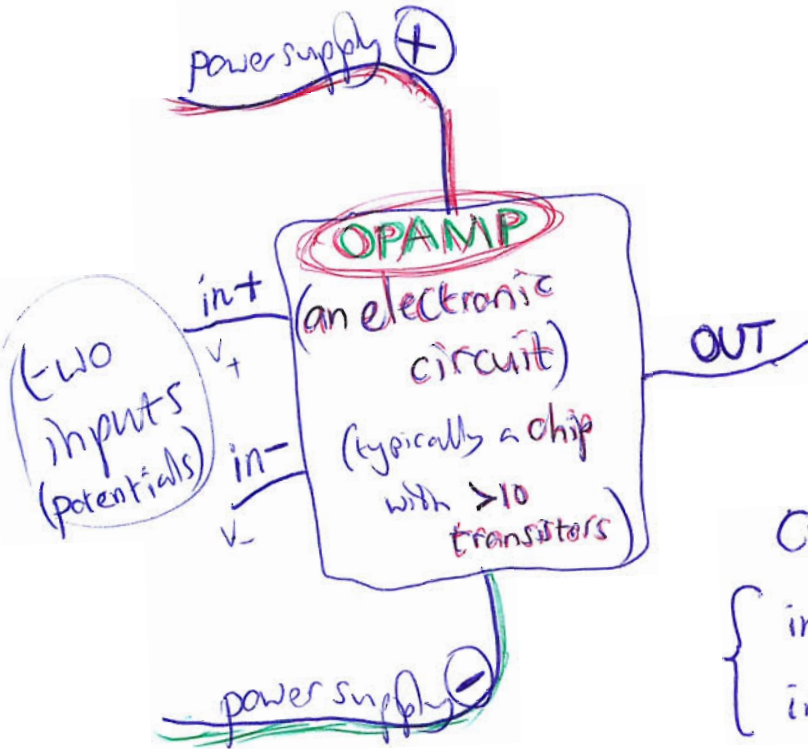 power supply +
OPAMP
(an electronic
circuit)
(typically a chip
with >10
transistors)
in+
V+
(two
inputs
(potentials)
in-
V-
OUT
power supply -